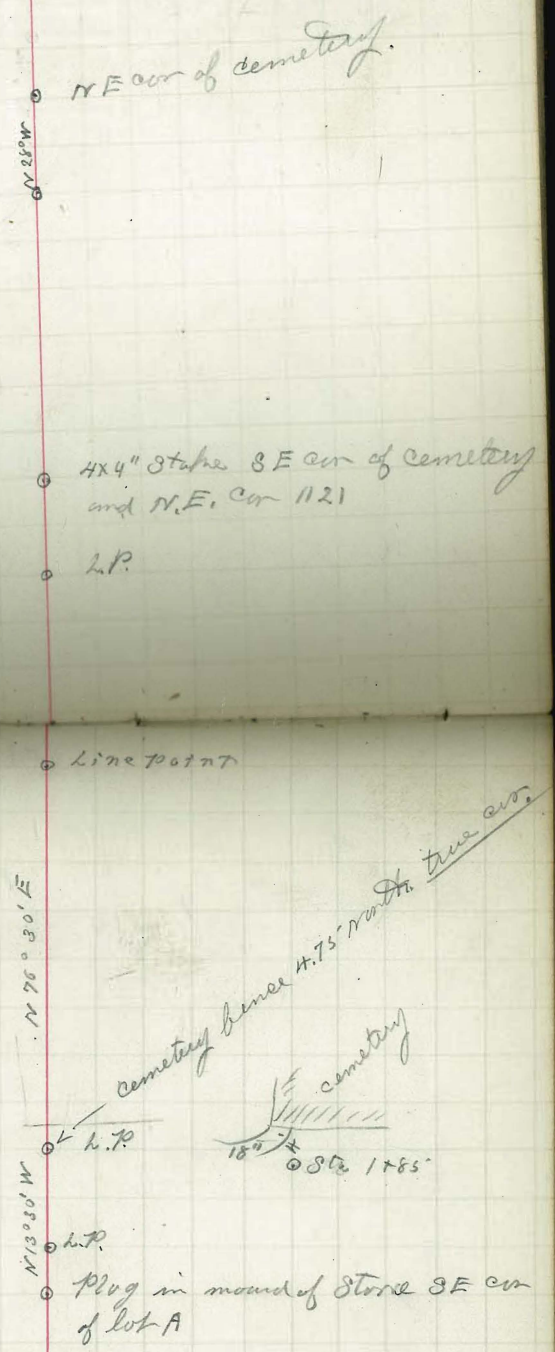 N E cor of cemetery.
N 28° W
4x4" Stake S E cor of cemetery
and N.E. Cor 1121
L.P.
Line Point
N 76° 30' E
cemetery fence 4.75 North. true cor.
cemetery
L.P.
18"
Sta 1+85
N 13° 30' W
L.P.
Plug in mound of Stone SE cor
of lot A